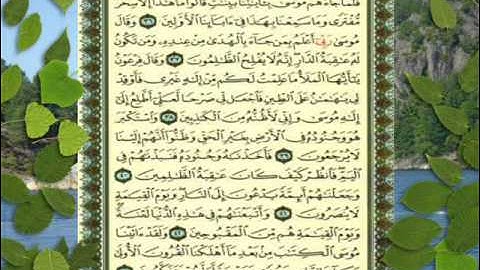 فَلَمَّا جَآءَهُم مُّوسَىٰ بِـَٔايَٰتِنَا بَيِّنَٰتٍ قَالُوا۟ مَا هَٰذَآ إِلَّا سِحْرٌ
مُّفْتَرًى وَمَا سَمِعْنَا بِهَٰذَا فِىٓ ءَابَآئِنَا ٱلْأَوَّلِينَ ٣٦ وَقَالَ
مُوسَىٰ رَبِّىٓ أَعْلَمُ بِمَن جَآءَ بِٱلْهُدَىٰ مِنْ عِندِهِۦ وَمَن تَكُونُ
لَهُۥ عَٰقِبَةُ ٱلدَّارِ إِنَّهُۥ لَا يُفْلِحُ ٱلظَّٰلِمُونَ ٣٧ وَقَالَ فِرْعَوْنُ
يَٰٓأَيُّهَا ٱلْمَلَأُ مَا عَلِمْتُ لَكُم مِّنْ إِلَٰهٍ غَيْرِى فَأَوْقِدْ
لِى يَٰهَٰمَٰنُ عَلَى ٱلطِّينِ فَٱجْعَل لِّى صَرْحًا لَّعَلِّىٓ أَطَّلِعُ إِلَىٰٓ
إِلَٰهِ مُوسَىٰ وَإِنِّى لَأَظُنُّهُۥ مِنَ ٱلْكَٰذِبِينَ ٣٨ وَٱسْتَكْبَرَ
هُوَ وَجُنُودُهُۥ فِى ٱلْأَرْضِ بِغَيْرِ ٱلْحَقِّ وَظَنُّوٓا۟ أَنَّهُمْ إِلَيْنَا
لَا يُرْجَعُونَ ٣٩ فَأَخَذْنَٰهُ وَجُنُودَهُۥ فَنَبَذْنَٰهُمْ فِى
ٱلْيَمِّ فَٱنظُرْ كَيْفَ كَانَ عَٰقِبَةُ ٱلظَّٰلِمِينَ ٤٠
وَجَعَلْنَٰهُمْ أَئِمَّةً يَدْعُونَ إِلَى ٱلنَّارِ وَيَوْمَ ٱلْقِيَٰمَةِ
لَا يُنصَرُونَ ٤١ وَأَتْبَعْنَٰهُمْ فِى هَٰذِهِ ٱلدُّنْيَا لَعْنَةً
وَيَوْمَ ٱلْقِيَٰمَةِ هُم مِّنَ ٱلْمَقْبُوحِينَ ٤٢ وَلَقَدْ ءَاتَيْنَا
مُوسَى ٱلْكِتَٰبَ مِنۢ بَعْدِ مَآ أَهْلَكْنَا ٱلْقُرُونَ ٱلْأُولَىٰ